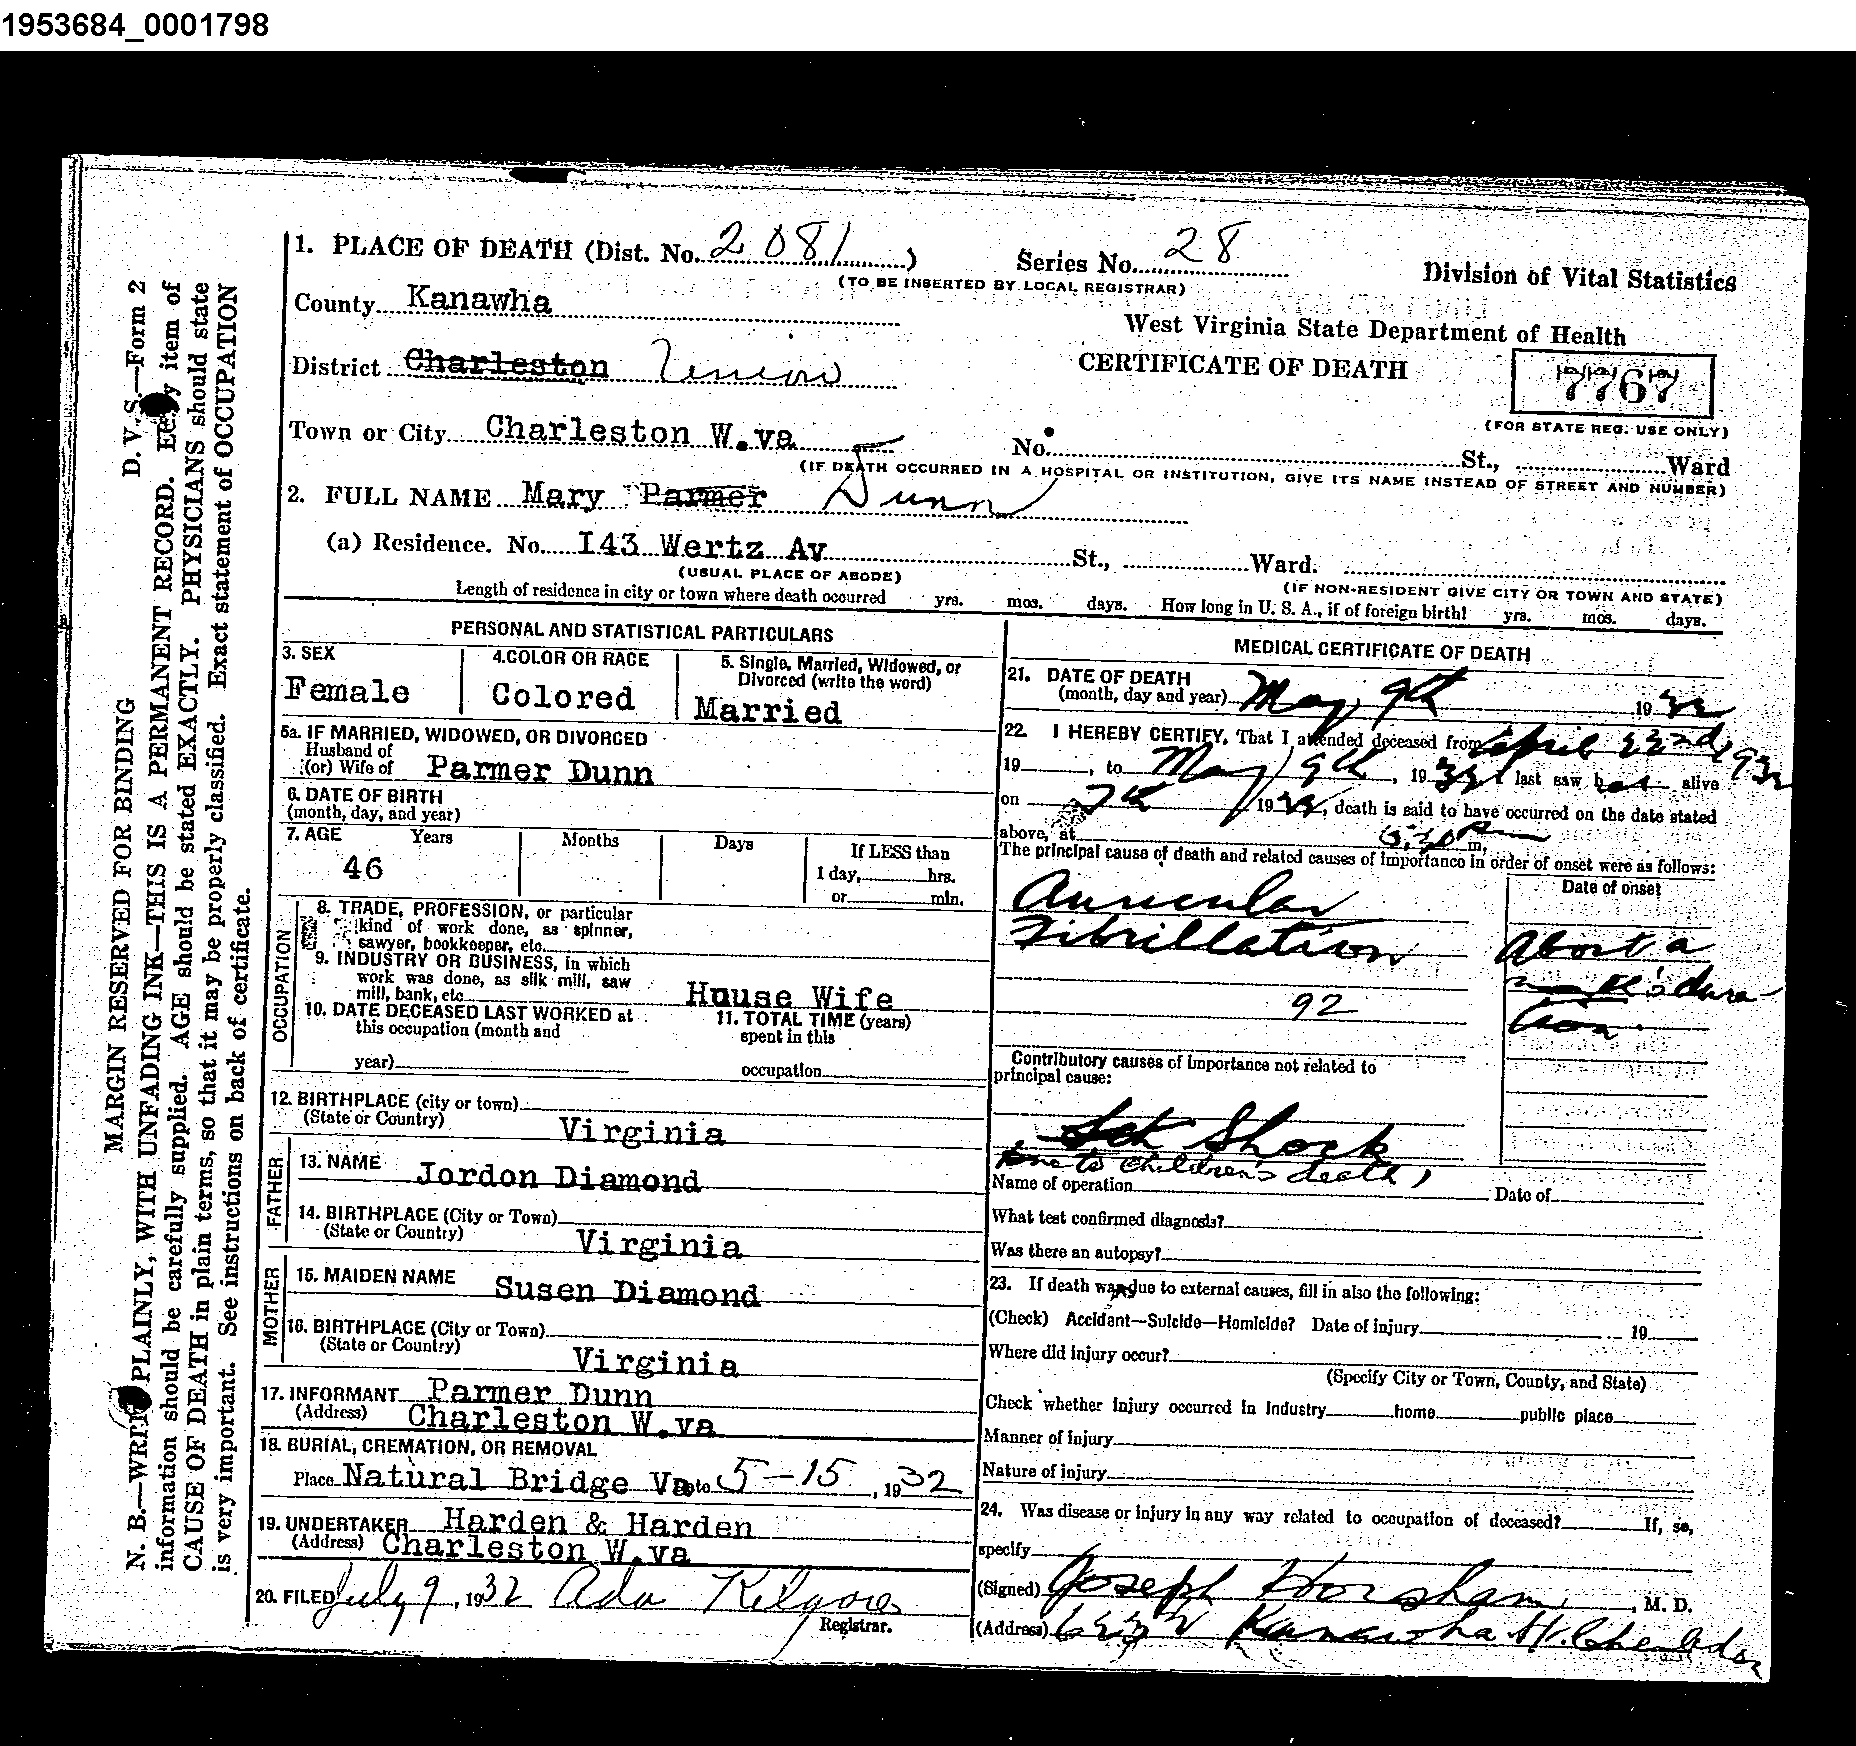 1953684_0001798
1. PLACE OF DEATH (Dist. No. 2081) Series No. 28
(TO BE INSERTED BY LOCAL REGISTRAR)
Division of Vital Statistics
County Kanawha
West Virginia State Department of Health
District Charleston Union
CERTIFICATE OF DEATH
7767
(FOR STATE REG. USE ONLY)
Town or City Charleston W.va No. St., Ward
(IF DEATH OCCURRED IN A HOSPITAL OR INSTITUTION, GIVE ITS NAME INSTEAD OF STREET AND NUMBER)
2. FULL NAME Mary Parmer Dunn
(a) Residence. No. I43 Wertz Av St., Ward.
(USUAL PLACE OF ABODE) (IF NON-RESIDENT GIVE CITY OR TOWN AND STATE)
Length of residence in city or town where death occurred yrs. mos. days. How long in U. S. A., if of foreign birth? yrs. mos. days.
PERSONAL AND STATISTICAL PARTICULARS
3. SEX
Female
4. COLOR OR RACE
Colored
5. Single, Married, Widowed, or
Divorced (write the word)
Married
5a. IF MARRIED, WIDOWED, OR DIVORCED
Husband of
(or) Wife of Parmer Dunn
6. DATE OF BIRTH
(month, day, and year)
7. AGE Years Months Days If LESS than
46 1 day, hrs.
or min.
OCCUPATION
8. TRADE, PROFESSION, or particular
kind of work done, as spinner,
sawyer, bookkeeper, etc.
9. INDUSTRY OR BUSINESS, in which
work was done, as silk mill, saw
mill, bank, etc. House Wife
10. DATE DECEASED LAST WORKED at
this occupation (month and
year)
11. TOTAL TIME (years)
spent in this
occupation
12. BIRTHPLACE (city or town)
(State or Country) Virginia
FATHER
13. NAME Jordon Diamond
14. BIRTHPLACE (City or Town)
(State or Country) Virginia
MOTHER
15. MAIDEN NAME Susen Diamond
16. BIRTHPLACE (City or Town)
(State or Country) Virginia
17. INFORMANT Parmer Dunn
(Address) Charleston W.va
18. BURIAL, CREMATION, OR REMOVAL
Place Natural Bridge Va Date 5-15, 1932
19. UNDERTAKER Harden & Harden
(Address) Charleston W.va
20. FILED July 9, 1932 Ada Kilgore
Registrar.
MEDICAL CERTIFICATE OF DEATH
21. DATE OF DEATH
(month, day and year) May 9th 1932
22. I HEREBY CERTIFY, That I attended deceased from April 22nd 1932
19 , to May 9th, 1932 I last saw her alive
on 7th 1932, death is said to have occurred on the date stated
above, at m.
The principal cause of death and related causes of importance in order of onset were as follows:
Date of onset
Auricular
Fibrillation
About a
92
Contributory causes of importance not related to
principal cause:
Shock
due to children's death)
Name of operation Date of
What test confirmed diagnosis?
Was there an autopsy?
23. If death was due to external causes, fill in also the following:
(Check) Accident—Suicide—Homicide? Date of injury 19
Where did injury occur?
(Specify City or Town, County, and State)
Check whether injury occurred in industry home public place
Manner of injury
Nature of injury
24. Was disease or injury in any way related to occupation of deceased? If, so,
specify
(Signed) Joseph Horsham, M. D.
(Address) Kanawha St.
MARGIN RESERVED FOR BINDING
D. V. S.—Form 2
N. B.—WRITE PLAINLY, WITH UNFADING INK—THIS IS A PERMANENT RECORD. Every item of
information should be carefully supplied. AGE should be stated EXACTLY. PHYSICIANS should state
CAUSE OF DEATH in plain terms, so that it may be properly classified. Exact statement of OCCUPATION
is very important. See instructions on back of certificate.